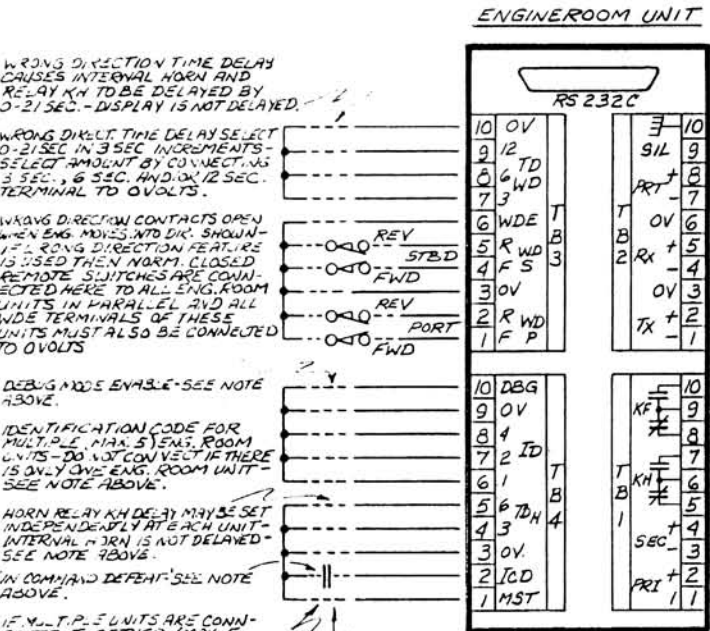 ENGINEROOM UNIT
WRONG DIRECTION TIME DELAY
CAUSES INTERNAL HORN AND
RELAY KH TO BE DELAYED BY
0-21 SEC. - DISPLAY IS NOT DELAYED.
WRONG DIRECT. TIME DELAY SELECT
0-21 SEC IN 3 SEC INCREMENTS-
SELECT AMOUNT BY CONNECTING
3 SEC., 6 SEC. AND/OR 12 SEC.
TERMINAL TO 0 VOLTS.
WRONG DIRECTION CONTACTS OPEN
WHEN ENG. MOVES INTO DIR. SHOWN-
IF WRONG DIRECTION FEATURE
IS USED THEN NORM. CLOSED
REMOTE SWITCHES ARE CONN-
ECTED HERE TO ALL ENG. ROOM
UNITS IN PARALLEL AND ALL
WDE TERMINALS OF THESE
UNITS MUST ALSO BE CONNECTED
TO 0 VOLTS
DEBUG MODE ENABLE - SEE NOTE
ABOVE.
IDENTIFICATION CODE FOR
MULTIPLE (MAX. 5) ENG. ROOM
UNITS - DO NOT CONNECT IF THERE
IS ONLY ONE ENG. ROOM UNIT -
SEE NOTE ABOVE.
HORN RELAY KH DELAY MAY BE SET
INDEPENDENTLY AT EACH UNIT-
INTERNAL HORN IS NOT DELAYED-
SEE NOTE ABOVE.
IN COMMAND DEFEAT - SEE NOTE
ABOVE.
IF MULTIPLE UNITS ARE CONN-
REV
STBD
FWD
REV
PORT
FWD
RS 232C
10 0V
9 12
8 6 TD
7 3 WD
6 WDE
5 R WD
4 F S
3 0V
2 R WD
1 F P
TB3
TB2
10
SIL 9
PRT + 8
- 7
0V 6
RX + 5
- 4
0V 3
TX + 2
- 1
10 DBG
9 0V
8 4
7 2 ID
6 1
5 6 TDH
4 3
3 0V.
2 ICD
1 MST
TB4
TB1
10
KF 9
8
7
KH 6
5
SEC + 4
- 3
PRI + 2
1